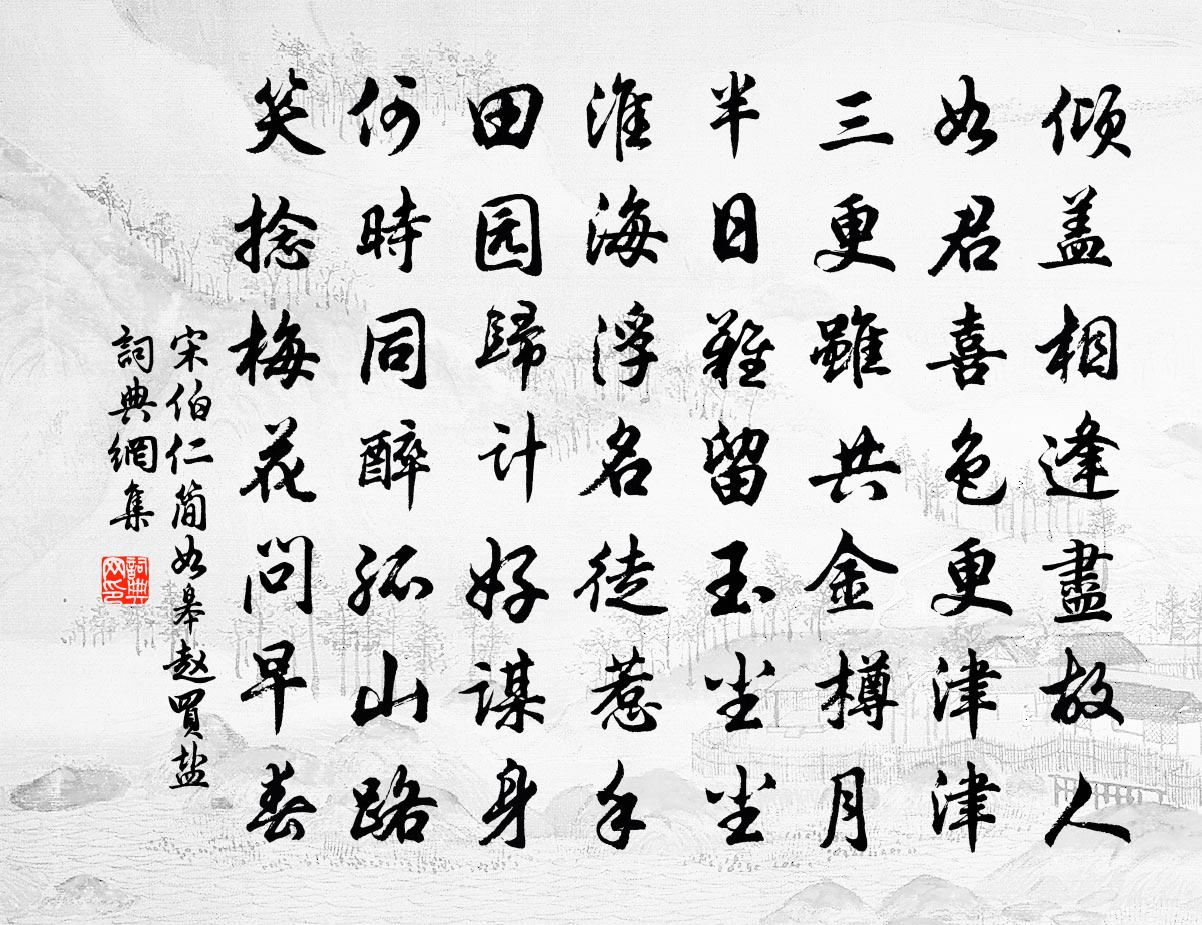 倾盖相逢盡故人
如君喜色更津津
三更雖共金樽月
半日難留玉尘尘
淮海浮名徒惹手
田园歸计好谋身
何時同醉孤山路
笑捻梅花问早春
宋伯仁简如皋赵買盐
詞典網集
詞典网印